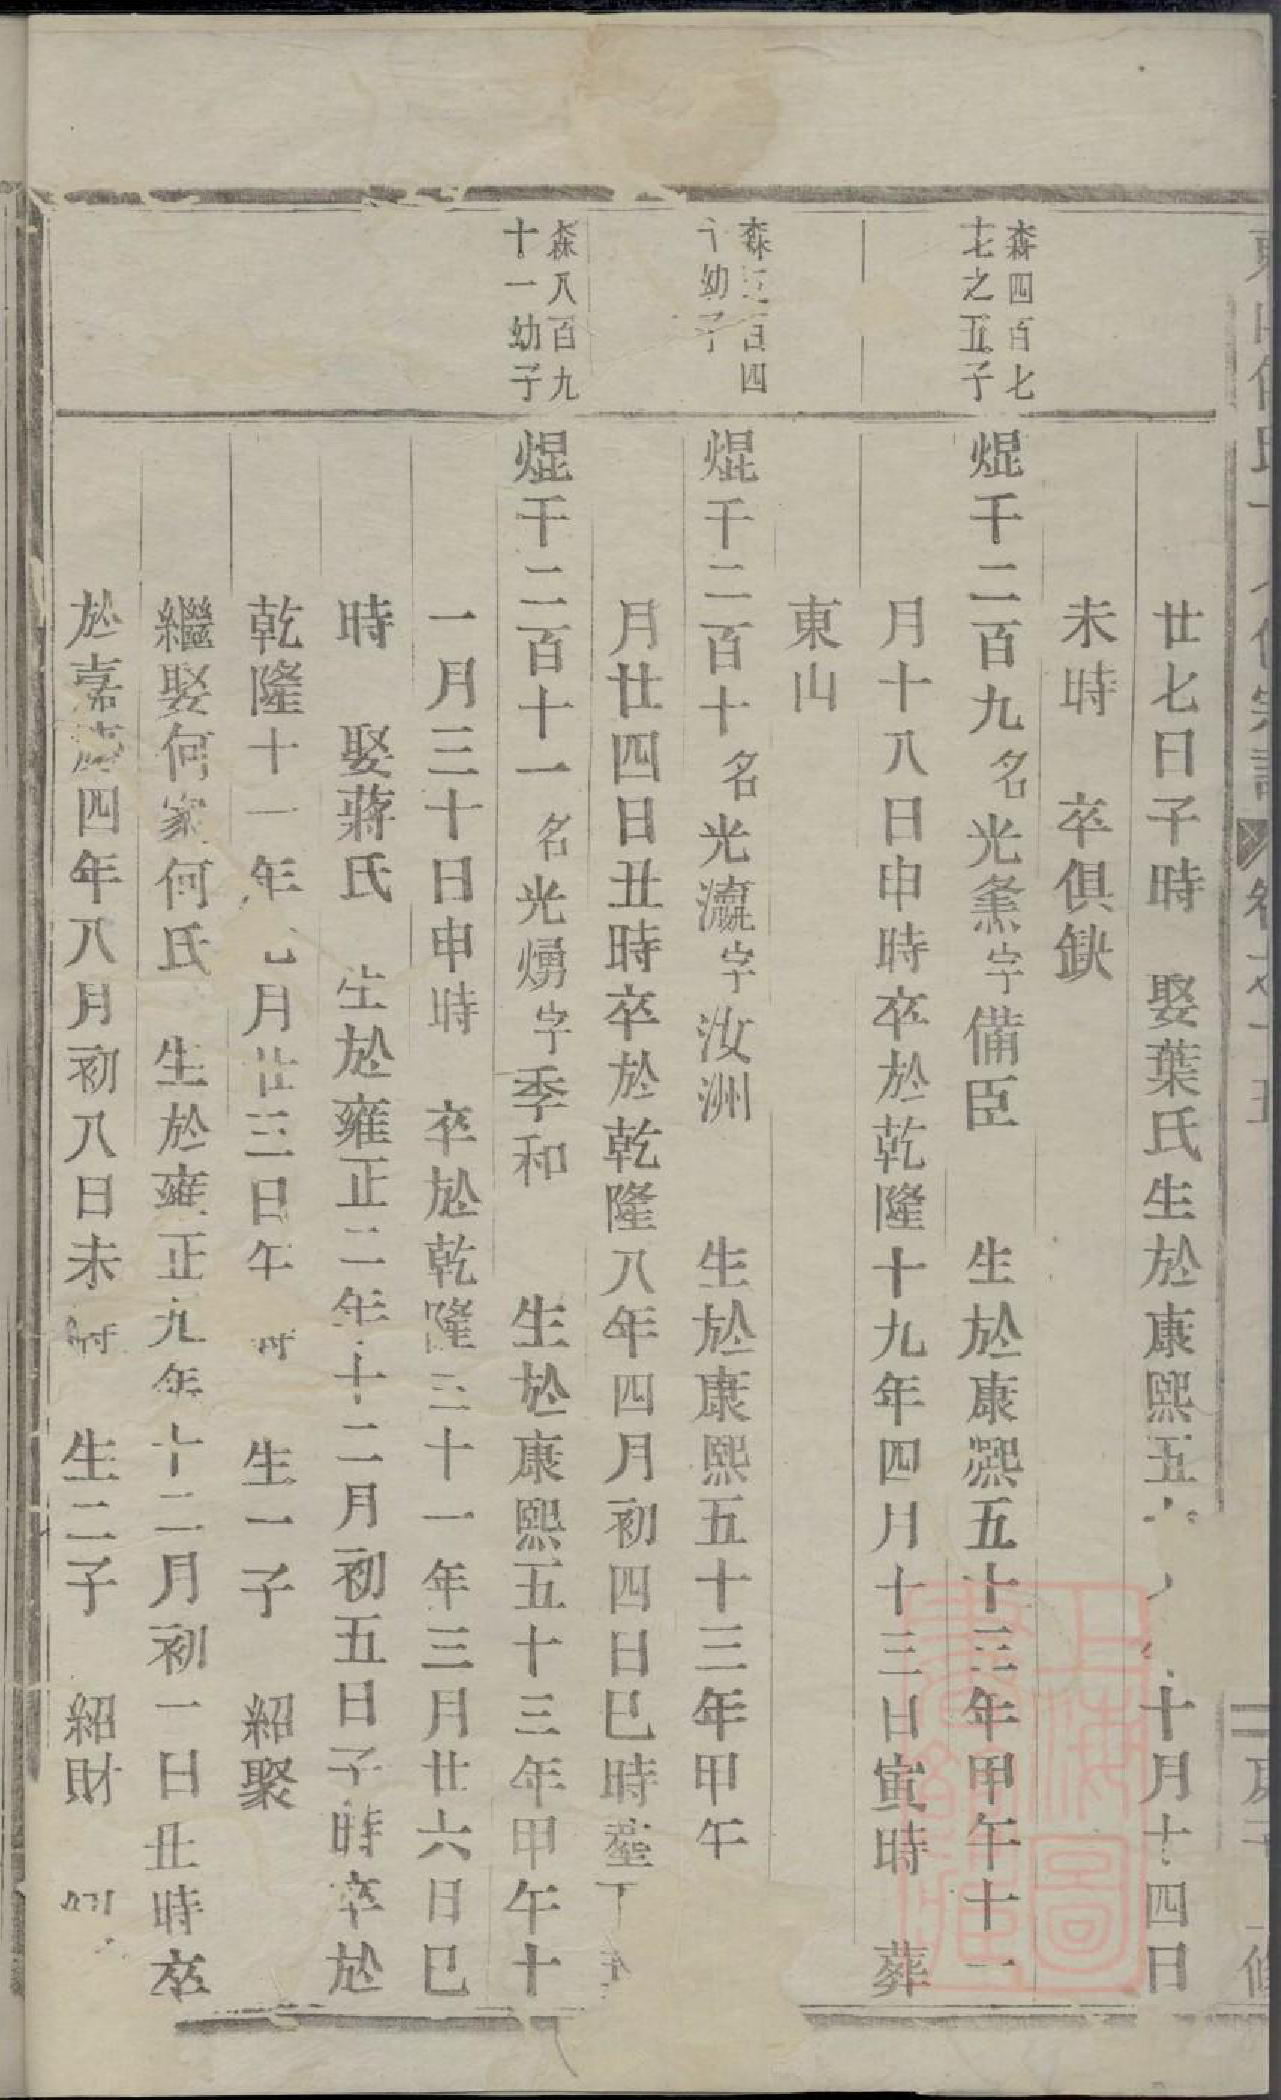 廿七日子時　娶葉氏生於康熙五　十月十四日
未時　卒俱缺
森四百七
十七之五子
焜千二百九名光㷅字備臣　生於康熙五十三年甲午十一
月十八日申時卒於乾隆十九年四月十三日寅時　葬
東山
森　百四
十幼子
焜千二百十名光瀛字汝洲　生於康熙五十三年甲午
月廿四日丑時卒於乾隆八年四月初四日巳時塟
森八百九
十一幼子
焜千二百十一名光㷧字季和　生於康熙五十三年甲午十
一月三十日申時　卒於乾隆三十一年三月廿六日巳
時　娶蔣氏　生於雍正二年十二月初五日子時卒於
乾隆十一年　月廿三日午時　生一子　紹聚
繼娶何家何氏　生於雍正九年十二月初一日丑時卒
於嘉慶四年八月初八日未時　生二子　紹財
上海圖書館藏